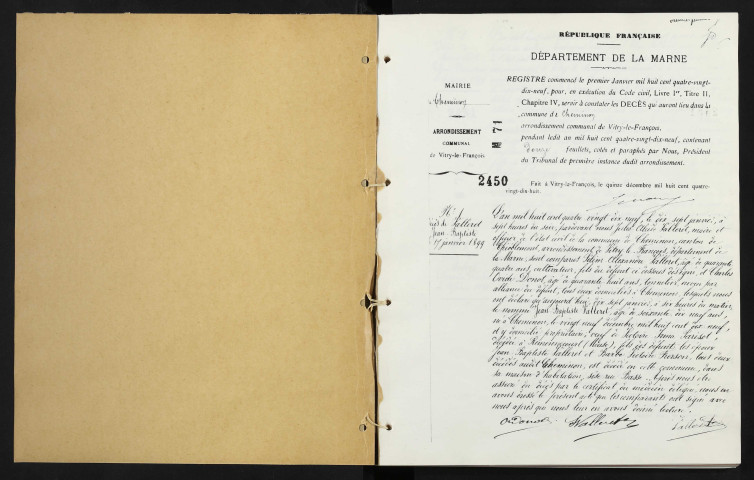 RÉPUBLIQUE FRANÇAISE
DÉPARTEMENT DE LA MARNE
MAIRIE
Cheminon
ARRONDISSEMENT
COMMUNAL
de Vitry-le-François
REGISTRE commencé le premier Janvier mil huit cent quatre-vingt-
dix-neuf, pour, en exécution du Code civil, Livre Ier, Titre II,
Chapitre IV, servir à constater les DÉCÈS qui auront lieu dans la
commune de Cheminon
arrondissement communal de Vitry-le-François,
pendant ledit an mil huit cent quatre-vingt-dix-neuf, contenant
feuillets, cotés et paraphés par Nous, Président
du Tribunal de première instance dudit arrondissement.
2450
Fait à Vitry-le-François, le quinze décembre mil huit cent quatre-
vingt-dix-huit.
No 1
décès de Valleret
Jean Baptiste
17 janvier 1899
L'an mil huit cent quatre vingt dix neuf, le dix sept janvier, à
sept heures du soir, pardevant nous Jules Valleret, maire et
officier de l'état civil de la commune de Cheminon, canton de
Thiéblemont, arrondissement de Vitry le François, département de
la Marne, sont comparus Alexandre Valleret, âgé de quarante
quatre ans, cultivateur, fils du défunt ci dessous désigné, et Charles
Donot, âgé de quarante huit ans, tonnelier, neveu par
alliance du défunt, tous deux domiciliés à Cheminon, lesquels nous
ont déclaré qu'aujourd'hui, dix sept janvier, à six heures du matin,
le nommé Jean Baptiste Valleret, âgé de soixante dix neuf ans,
né à Cheminon, le vingt neuf décembre mil huit cent dix neuf,
y domicilié, propriétaire, veuf de Victoire
décédée à (Meuse), fils des défunts, les époux
Jean Baptiste Valleret et Barbe Victoire Pierson, tous deux
décédés audit Cheminon, est décédé en cette commune, dans
sa maison d'habitation, sise rue Basse. Après nous être
assuré du décès par le certificat du médecin délégué, nous en
avons dressé le présent acte que les comparants ont signé avec
nous après que nous leur en avons donné lecture.
Donot Valleret Valleret